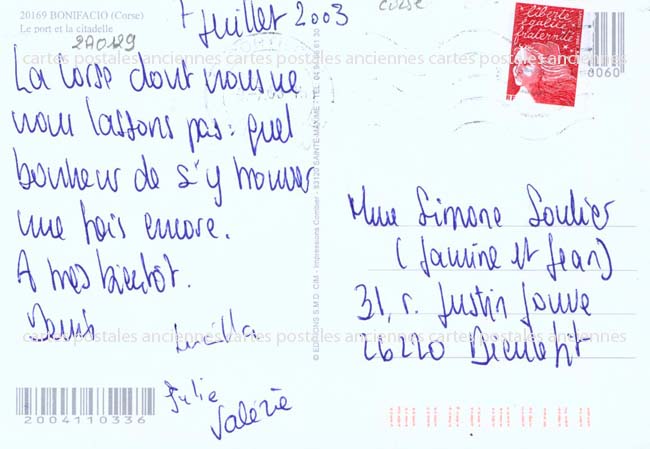 20169 BONIFACIO (Corse)
Le port et la citadelle
2A0129
Juillet 2003
La Corse dont nous ne
nous lassons pas : quel
bonheur de s'y trouver
une fois encore.
A très bientôt.
Lucilla
Julie
Valérie
2004110336
© EDITIONS S.M.D. CIM - Impressions Combier - 83120 SAINTE-MAXIME - TEL. 04
corse
Liberté
égalité
fraternité
RF
8060
Mme Simone Soulier
(Janine et Jean)
31, r. Justin Jouve
26220 Dieulefit
cartes postales anciennes cartes postales anciennes cartes postales anciennes
cartes postales anciennes cartes postales anciennes cartes postales anciennes